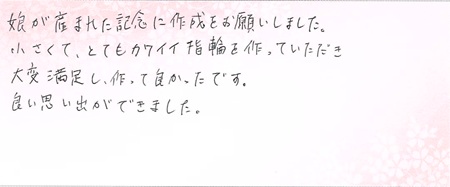 娘が産まれた記念に作成をお願いしました。
小さくて、とてもカワイイ指輪を作っていただき
大変満足し、作って良かったです。
良い思い出ができました。